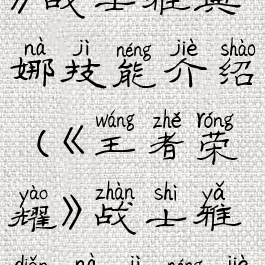 》战士雅典
nà jì néng jiè shào
娜技能介绍
wáng zhě róng
（《王者荣
yào zhàn shì yǎ
耀》战士雅
diǎn nà jì néng jiè